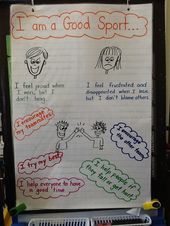 I am a Good Sport...
I feel proud when
I win, but I
don't brag.
I feel frustrated and
disappointed when I lose,
but I don't blame others.
I encourage
my
teammates.
I encourage
the
other team.
I try my best.
I help people if
they fall or get hurt.
I help everyone to have
a good time.